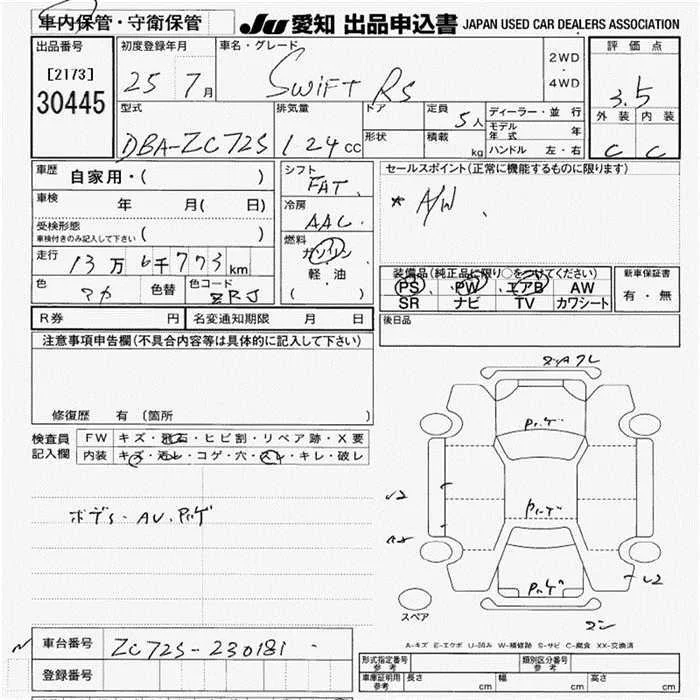 車内保管・守衛保管 JU 愛知 出品申込書 JAPAN USED CAR DEALERS ASSOCIATION
出品番号 [2173] 30445
初度登録年月 25 7月
車名・グレード SWiFT RS
2WD・4WD
評価点 3.5
外装 C 内装 C
型式 DBA-ZC72S
排気量 1.24cc
ドア
形状
定員 5人
積載 kg
ディーラー・並行
モデル年式 年
ハンドル 左・右
車歴 自家用・( )
車検 年 月( 日)
受検形態 車検付きのみ記入して下さい ( )
走行 13万6千773km
色 色替 色コード ZRJ
シフト FAT
冷房 AAC
燃料 ガソリン
軽油
( )
セールスポイント(正常に機能するものに限ります)
* A/W
装備品(純正品に限り○をつけてください)
PS PW エアB AW
SR ナビ TV カワシート
新車保証書 有・無
後日品
R券 円 名変通知期限 月 日
注意事項申告欄(不具合内容等は具体的に記入して下さい)
修復歴 有 (箇所 )
検査員記入欄
FW キズ・飛石・ヒビ割・リペア跡・X要
内装 キズ・汚レ・コゲ・穴・スレ・キレ・破レ
ボデS・AU.キズ
スペア
A-キズ E-エクボ U-凹み W-補修跡 S-サビ C-腐食 XX-交換済
車台番号 ZC72S-230181
登録番号
形式指定番号 参考 類別区分番号 参考
車庫証明用 参考 長さ cm 幅 cm 高さ cm